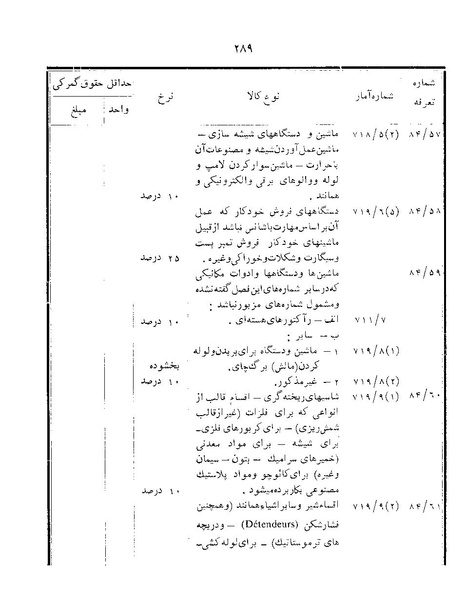 ۲۸۹
شماره تعرفه شماره‌آمار نوع‌کالا نرخ حداقل حقوق‌گمرکی واحد مبلغ
۸۴/۵۷ ۷۱۸/۵(۲) ماشین و دستگاههای شیشه سازی –
ماشین‌عمل‌آوردن‌شیشه و مصنوعات‌آن
باحرارت – ماشین‌سوارکردن لامپ و
لوله ووالوهای برقی والکترونیکی و
همانند . ۱۰ درصد
۸۴/۵۸ ۷۱۹/۶(۵) دستگاههای فروش خودکار که عمل
آن‌براساس‌مهارت‌یاشانس نباشد ازقبیل
ماشینهای خودکار فروش تمبر پست
وسیگارت وشکلات وخوراکی‌وغیره . ۲۵ درصد
۸۴/۵۹ ماشین‌ها ودستگاهها وادوات مکانیکی
که‌درسایر شماره‌های‌این‌فصل‌گفته‌نشده
ومشمول شماره‌های مزبورنباشد :
۷۱۱/۷ الف – رآکتورهای‌هسته‌ای . ۱۰ درصد
ب – سایر :
۷۱۹/۸(۱) ۱ – ماشین ودستگاه برای‌بریدن‌ولوله
کردن(مالش) برگ‌چای. بخشوده
۷۱۹/۸(۲) ۲ – غیرمذکور. ۱۰ درصد
۸۴/۶۰ ۷۱۹/۹(۱) شاسیهای‌ریخته‌گری – اقسام قالب از
انواعی که برای فلزات (غیرازقالب
شمش‌ریزی) – برای کربورهای فلزی–
برای شیشه – برای مواد معدنی
(خمیرهای سرامیک – بتون – سیمان
وغیره) برای‌کائوچو ومواد پلاستیک
مصنوعی بکاربرده‌میشود . ۱۰ درصد
۸۴/۶۱ ۷۱۹/۹(۲) اقسام‌شیر وسایراشیاء‌همانند (وهمچنین
فشارشکن (Détendeurs) – ودریچه
های ترموستاتیک) – برای‌لوله‌کشی–